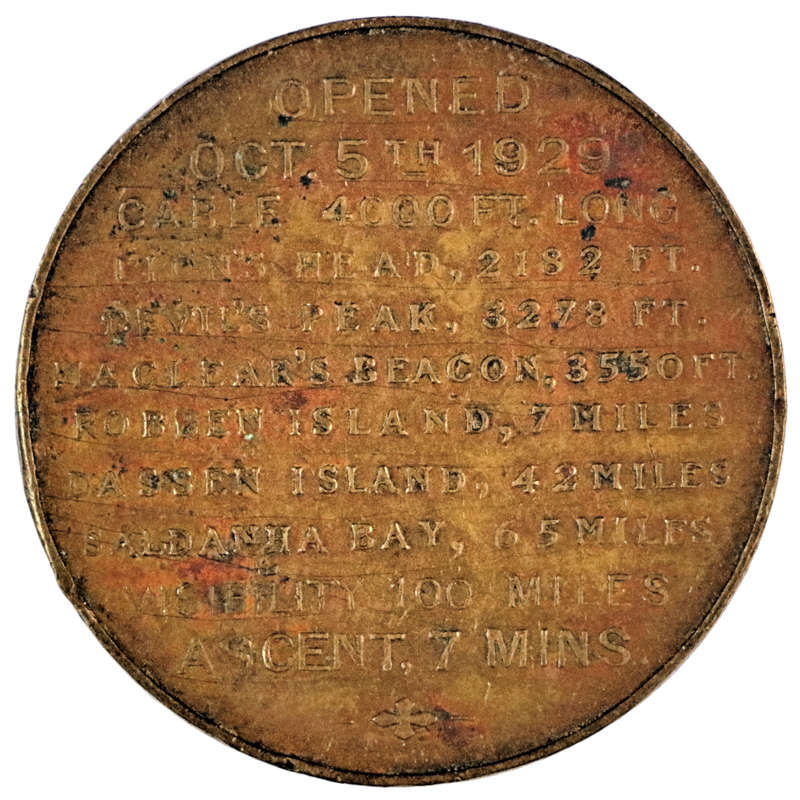 OPENED
OCT. 5TH 1929
CABLE 4000 FT. LONG
LION'S HEAD, 2182 FT.
DEVIL'S PEAK, 3278 FT.
MACLEAR'S BEACON, 3550 FT.
ROBBEN ISLAND, 7 MILES
DASSEN ISLAND, 42 MILES
SALDANHA BAY, 65 MILES
VISIBILITY 100 MILES
ASCENT, 7 MINS.